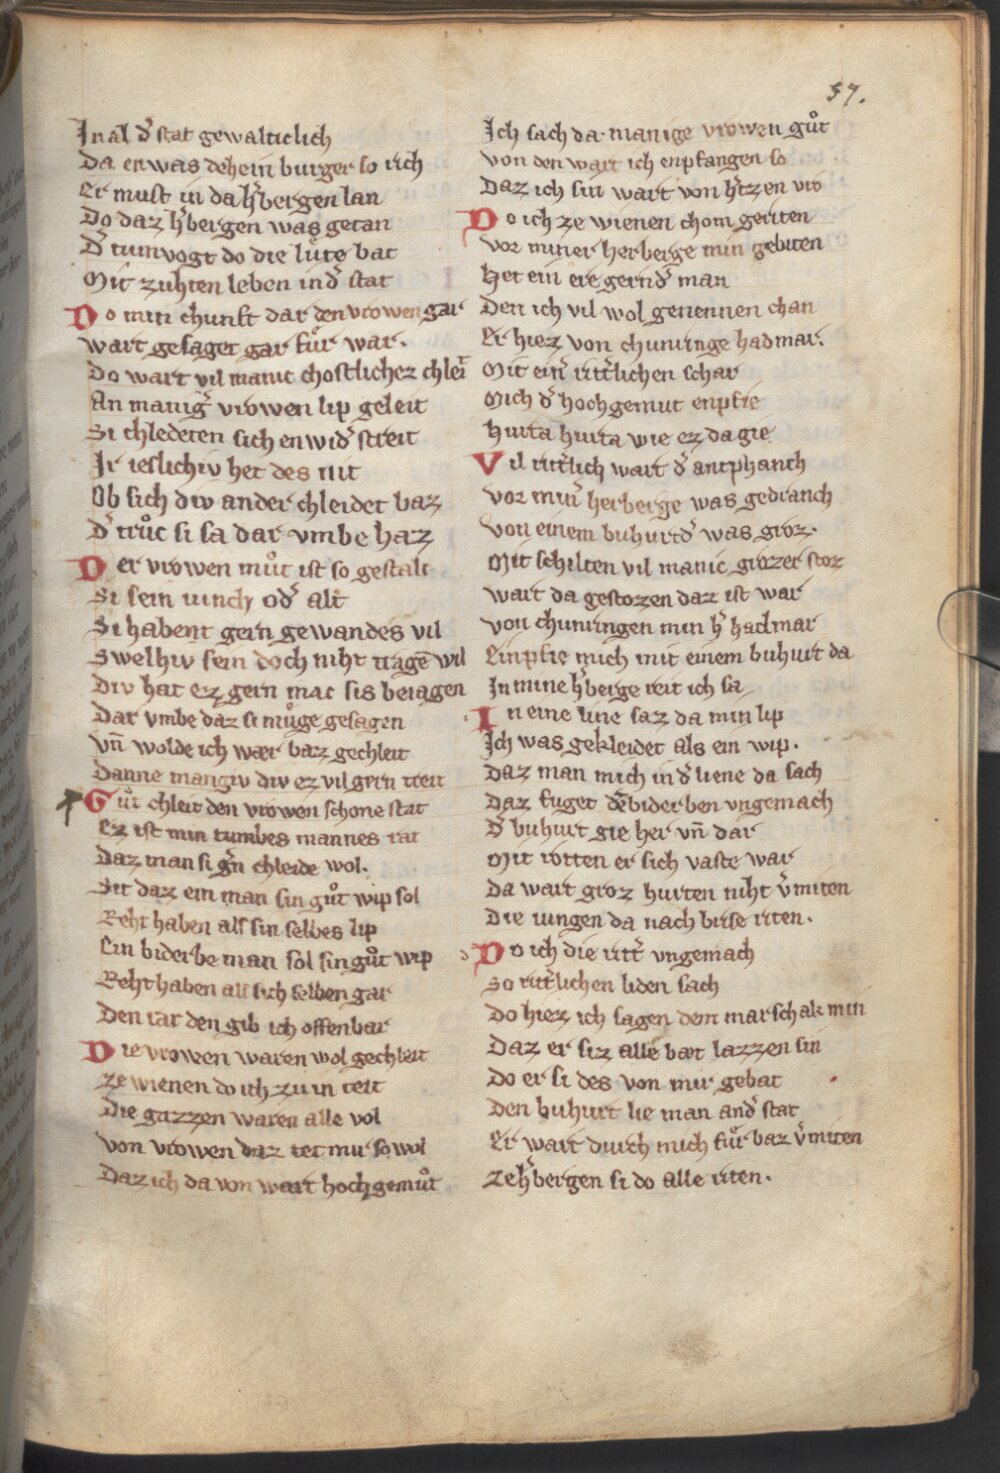 57.
In al d̾ stat gewaltıclich
Da en was dehein burger so rich
Er must in da h̾bergen lan
Do daz h̾bergen was getan
D̾ tumvogt do die lůte bat
Mit zuhten leben in d̾ stat
Do min chunft dar den vrowen gar
wart gesaget gar fůr war.
Do wart vil manic chostlichez chleit
An manig̾ vrowen lip geleit
Si chledeten sich en wid̾ streit
Ir ieslichiv het des nit
Ob sich div ander chleidet baz
D̾ trůc si sa dar vmbe haz
Der vrowen můt ist so gestalt
Si sein iunch od̾ alt
Si habent gern gewandes vil
Swelhiv sein doch niht tragē wil
Div hat ez gern mac sis beiagen
Dar vmbe daz si můge gesagen
vn̄ wolde ich wær baz gechleit
Danne mangiv div ez vil gern treit
Gůt chleit den vrowen schone stat
Ez ist min tumbes mannes rat
Daz man si g̾n chleide wol.
Sit daz ein man sin gůt wip sol
Reht haben als sin selbes lip
Ein biderbe man sol sin gůt wip
Reht haben als sich selben gar
Den rat den gib ich offenbar
Die vrowen waren wol gechleit
ze wienen do ich zu in reit
Die gazzen waren alle vol
von vrowen daz tet mir so wol
Daz ich da von wart hoch gemůt
Ich sach da manige vrowen gůt
von den wart ich enpfangen so
Daz ich sin wart von h̾tzen vro
Do ich ze wienen chom geriten
vor miner herberge min gebiten
Het ein ere gernd̾ man
Den ich vil wol genennen chan
Er hiez von chunringe hadmar.
Mit ein̾ ritt̾lichen schar
Mich d̾ hochgemut enpfie
hurta hurta wie ez da gie
Vil ritt̾lich wart d̾ antphanch
vor min̾ herberge was gedranch
von einem buhurt d̾ was groz.
Mit schilten vil manic grozer stoz
wart da gestozen daz ist war
von chunringen min h̾ hadmar
Einpfie mich mit einem buhurt da
In mine h̾berge reit ich sa
In eine line saz da min lip
Ich was gekleidet als ein wip.
Daz man mich in d̾ liene da sach
Daz fuget dē biderben vngemach
D̾ buhurt gie her vn̄ dar
Mit rotten er sich vaste war
Da wart groz hurten niht v̾miten
Die iungen da nach birse riten.
Do ich die ritt̾ vngemach
So ritt̾lichen liden sach
Do hiez ich sagen dem marschalk min
Daz er siz alle bæt lazzen sin
Do er si des von mir gebat
Den buhurt lie man an d̾ stat
Er wart durch mich fůr baz v̾miten
ze h̾bergen si do alle riten.